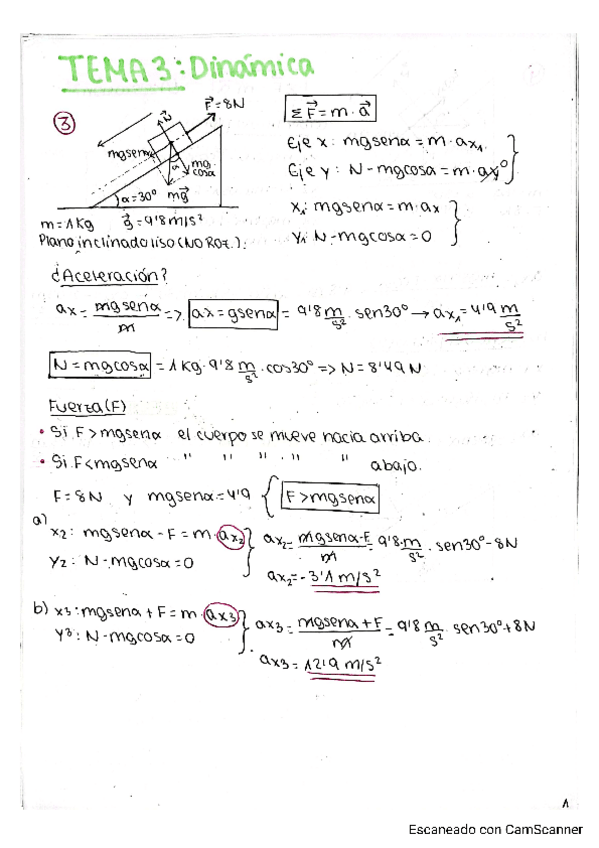 TEMA 3: Dinámica
③
F⃗=8N
N⃗
mgsenα
mg cosα
α
α=30º
mg⃗
m=1Kg g⃗=9'8m/s²
Plano inclinado liso (NO ROZ.):
ΣF⃗=m·a⃗
Eje x: mgsenα=m·ax₁
Eje y: N-mgcosα=m·ay⁰
x₁: mgsenα=m·ax
y₁: N-mgcosα=0
¿Aceleración?
ax = mgsenα/m => ax=gsenα = 9'8 m/s² · sen30º → ax₁=4'9 m/s²
N=mgcosα = 1Kg·9'8 m/s² ·cos30º => N=8'49 N
Fuerza (F)
• Si F>mgsenα el cuerpo se mueve hacia arriba.
• Si F<mgsenα " " " " " abajo.
F=8N y mgsenα=4'9 { F>mgsenα
a)
x₂: mgsenα-F=m·ax₂
y₂: N-mgcosα=0
ax₂= mgsenα-F/m = 9'8 m/s² · sen30º-8N
ax₂=-3'1 m/s²
b) x₃: mgsenα+F=m·ax₃
y₃: N-mgcosα=0
ax₃= mgsenα+F/m = 9'8 m/s² sen30º+8N
ax₃= 12'9 m/s²
1
Escaneado con CamScanner